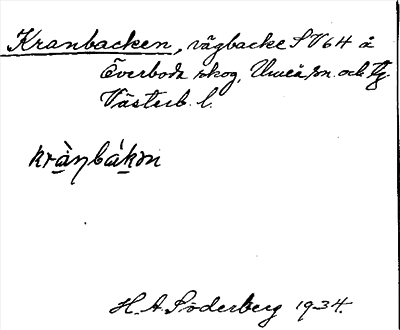 Kranbacken, vägbacke SV64 å
Överboda skog, Umeå sn. och tg.
Västerb. l.
krà̱ŋbáḵən
H. A. Söderberg 1934.